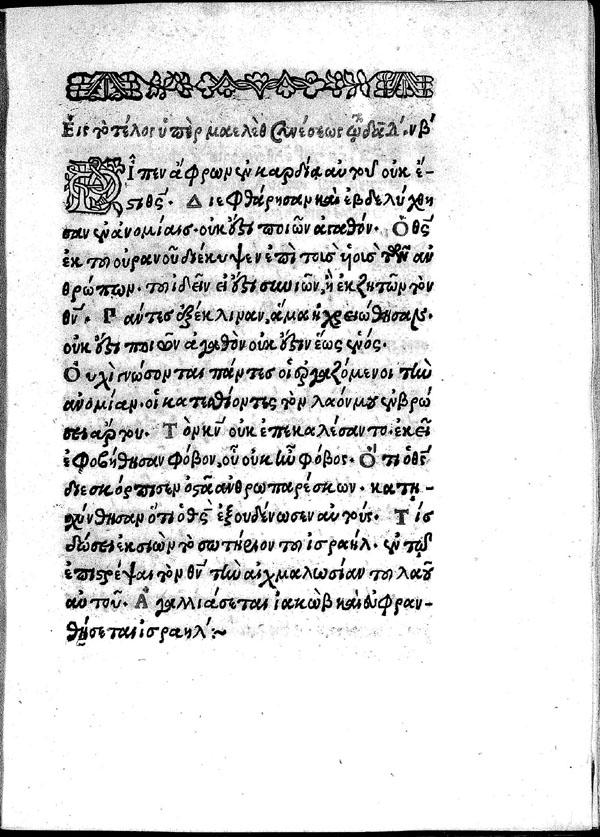 Εἰς τὸ τέλος ὑπὲρ μαελὲθ συνέσεως τῷ δα̅δ. νβʹ
Εἶπεν ἄφρων ἐν καρδίᾳ αὐτοῦ οὐκ ἔ-
στι θς̅. Διεφθάρησαν καὶ ἐβδελύχθη
σαν ἐν ἀνομίαις. οὐκ ἔστι ποιῶν ἀγαθόν. Ὁ θς̅
ἐκ τοῦ οὐρανοῦ διέκυψεν ἐπὶ τοὺς υἱοὺς τῶν ἀν
θρώπων. τοῦ ἰδεῖν εἰ ἔστι συνιῶν, ἢ ἐκζητῶν τὸν
θν̅. Πάντες ἐξέκλιναν, ἅμα ἠχρειώθησαν.
οὐκ ἔστι ποιῶν ἀγαθὸν οὐκ ἔστιν ἕως ἑνός.
Οὐχὶ γνώσονται πάντες οἱ ἐργαζόμενοι τὴν
ἀνομίαν. οἱ κατεσθίοντες τὸν λαόν μου ἐν βρώ
σει ἄρτου. Τὸν κν̅ οὐκ ἐπεκαλέσαντο. ἐκεῖ
ἐφοβήθησαν φόβον, οὗ οὐκ ἦν φόβος. Ὅτι ὁ θς̅
διεσκόρπισεν ὀστᾶ ἀνθρωπαρέσκων. κατῃ
σχύνθησαν ὅτι ὁ θς̅ ἐξουδένωσεν αὐτούς. Τίς
δώσει ἐκ σιὼν τὸ σωτήριον τοῦ ἰσραήλ. ἐν τῷ
ἐπιστρέψαι τὸν θν̅ τὴν αἰχμαλωσίαν τοῦ λαοῦ
αὐτοῦ. Ἀγαλλιάσεται ἰακὼβ καὶ εὐφραν-
θήσεται ἰσραήλ:~